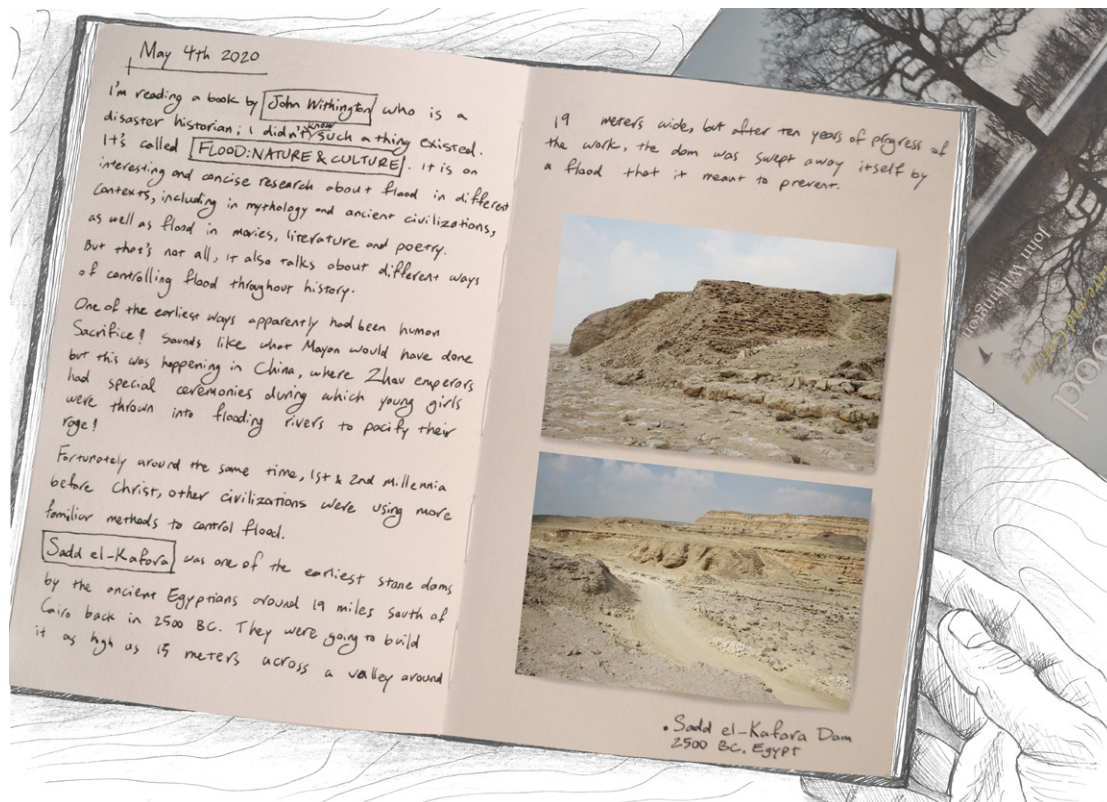 May 4th 2020
I'm reading a book by John Withington who is a
disaster historian; I didn't know such a thing existed.
It's called FLOOD: NATURE & CULTURE. It is an
interesting and concise research about flood in different
contexts, including in mythology and ancient civilizations,
as well as flood in movies, literature and poetry.
But that's not all, it also talks about different ways
of controlling flood throughout history.
One of the earliest ways apparently had been human
Sacrifice! Sounds like what Mayan would have done
but this was happening in China, where Zhou emperors
had special ceremonies during which young girls
were thrown into flooding rivers to pacify their
rage!
Fortunately around the same time, 1st & 2nd millennia
before Christ, other civilizations were using more
familiar methods to control flood.
Sadd el-Kafara was one of the earliest stone dams
by the ancient Egyptians around 19 miles south of
Cairo back in 2500 BC. They were going to build
it as high as 15 meters across a valley around
19 meters wide, but after ten years of progress of
the work, the dam was swept away itself by
a flood that it meant to prevent.
• Sadd el-Kafara Dam
2500 BC, Egypt
John Withington
ure and Culture
ood